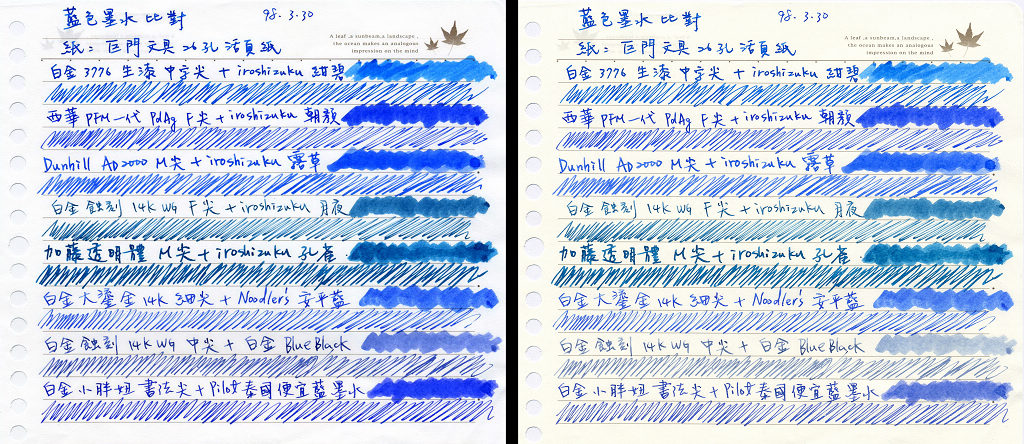 藍色墨水比對 98.3.30
紙：巨門文具26孔活頁紙
A leaf ,a sunbeam,a landscape ,
the ocean makes an analogous
impression on the mind
白金3776 生漆 中字尖 + iroshizuku 紺碧
西華PFM一代 PdAg F尖 + iroshizuku 朝顏
Dunhill AD2000 M尖 + iroshizuku 露草
白金 蝕刻 14K WG F尖 + iroshizuku 月夜
加藤透明體 M尖 + iroshizuku 孔雀
白金 大鎏金 14K 細尖 + Noodler's 安平藍
白金 蝕刻 14K WG 中尖 + 白金 Blue Black
白金 小胖妞 書法尖 + Pilot 泰國便宜藍墨水
藍色墨水比對 98.3.30
紙：巨門文具26孔活頁紙
A leaf ,a sunbeam,a landscape ,
the ocean makes an analogous
impression on the mind
白金3776 生漆 中字尖 + iroshizuku 紺碧
西華PFM一代 PdAg F尖 + iroshizuku 朝顏
Dunhill AD2000 M尖 + iroshizuku 露草
白金 蝕刻 14K WG F尖 + iroshizuku 月夜
加藤透明體 M尖 + iroshizuku 孔雀
白金 大鎏金 14K 細尖 + Noodler's 安平藍
白金 蝕刻 14K WG 中尖 + 白金 Blue Black
白金 小胖妞 書法尖 + Pilot 泰國便宜藍墨水